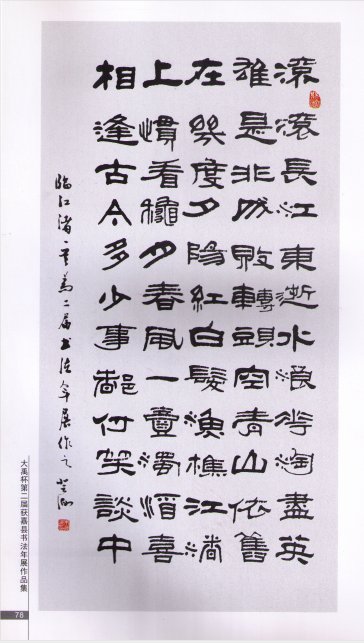 滾滾長江東逝水浪花淘盡英
雄是非成敗轉頭空青山依舊
在幾度夕陽紅白髮漁樵江渚
上慣看龝月春風一壺濁酒喜
相逢古今多少事都付笑談中
临江为二届书法年展作之
大禹杯第二届获嘉县书法年展作品集
78